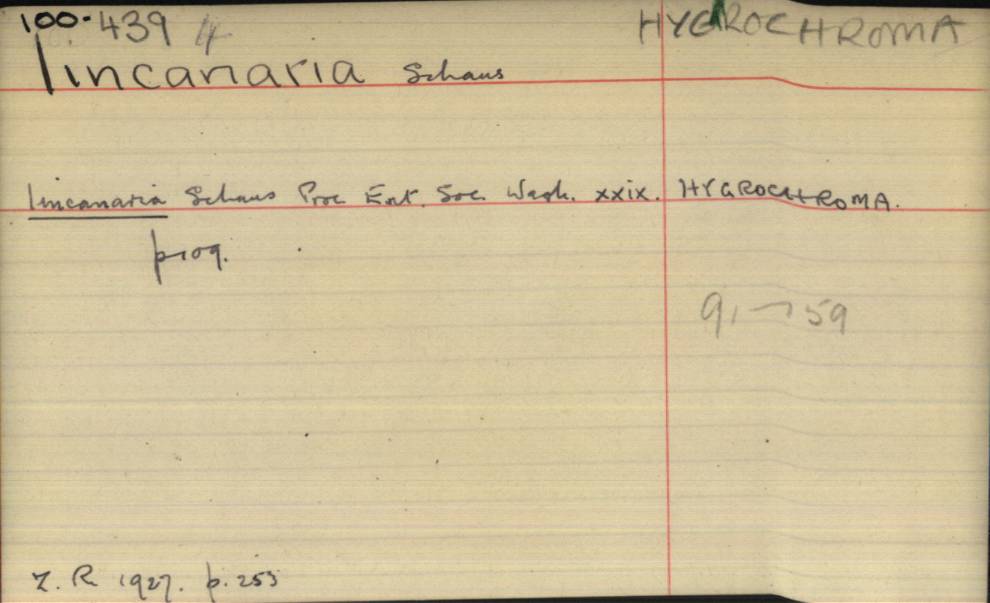 100.439 4 HYGROCHROMA
lincanaria Schaus
lincanaria Schaus Proc Ent. Soc. Wash. xxix. HYGROCHROMA.
p109.
91 → 59
Z. R. 1927. p. 253